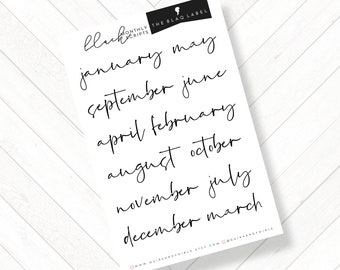 black MONTHLY SCRIPTS
THE BLAQ LABEL
january may
september june
april february
august october
november july
december march